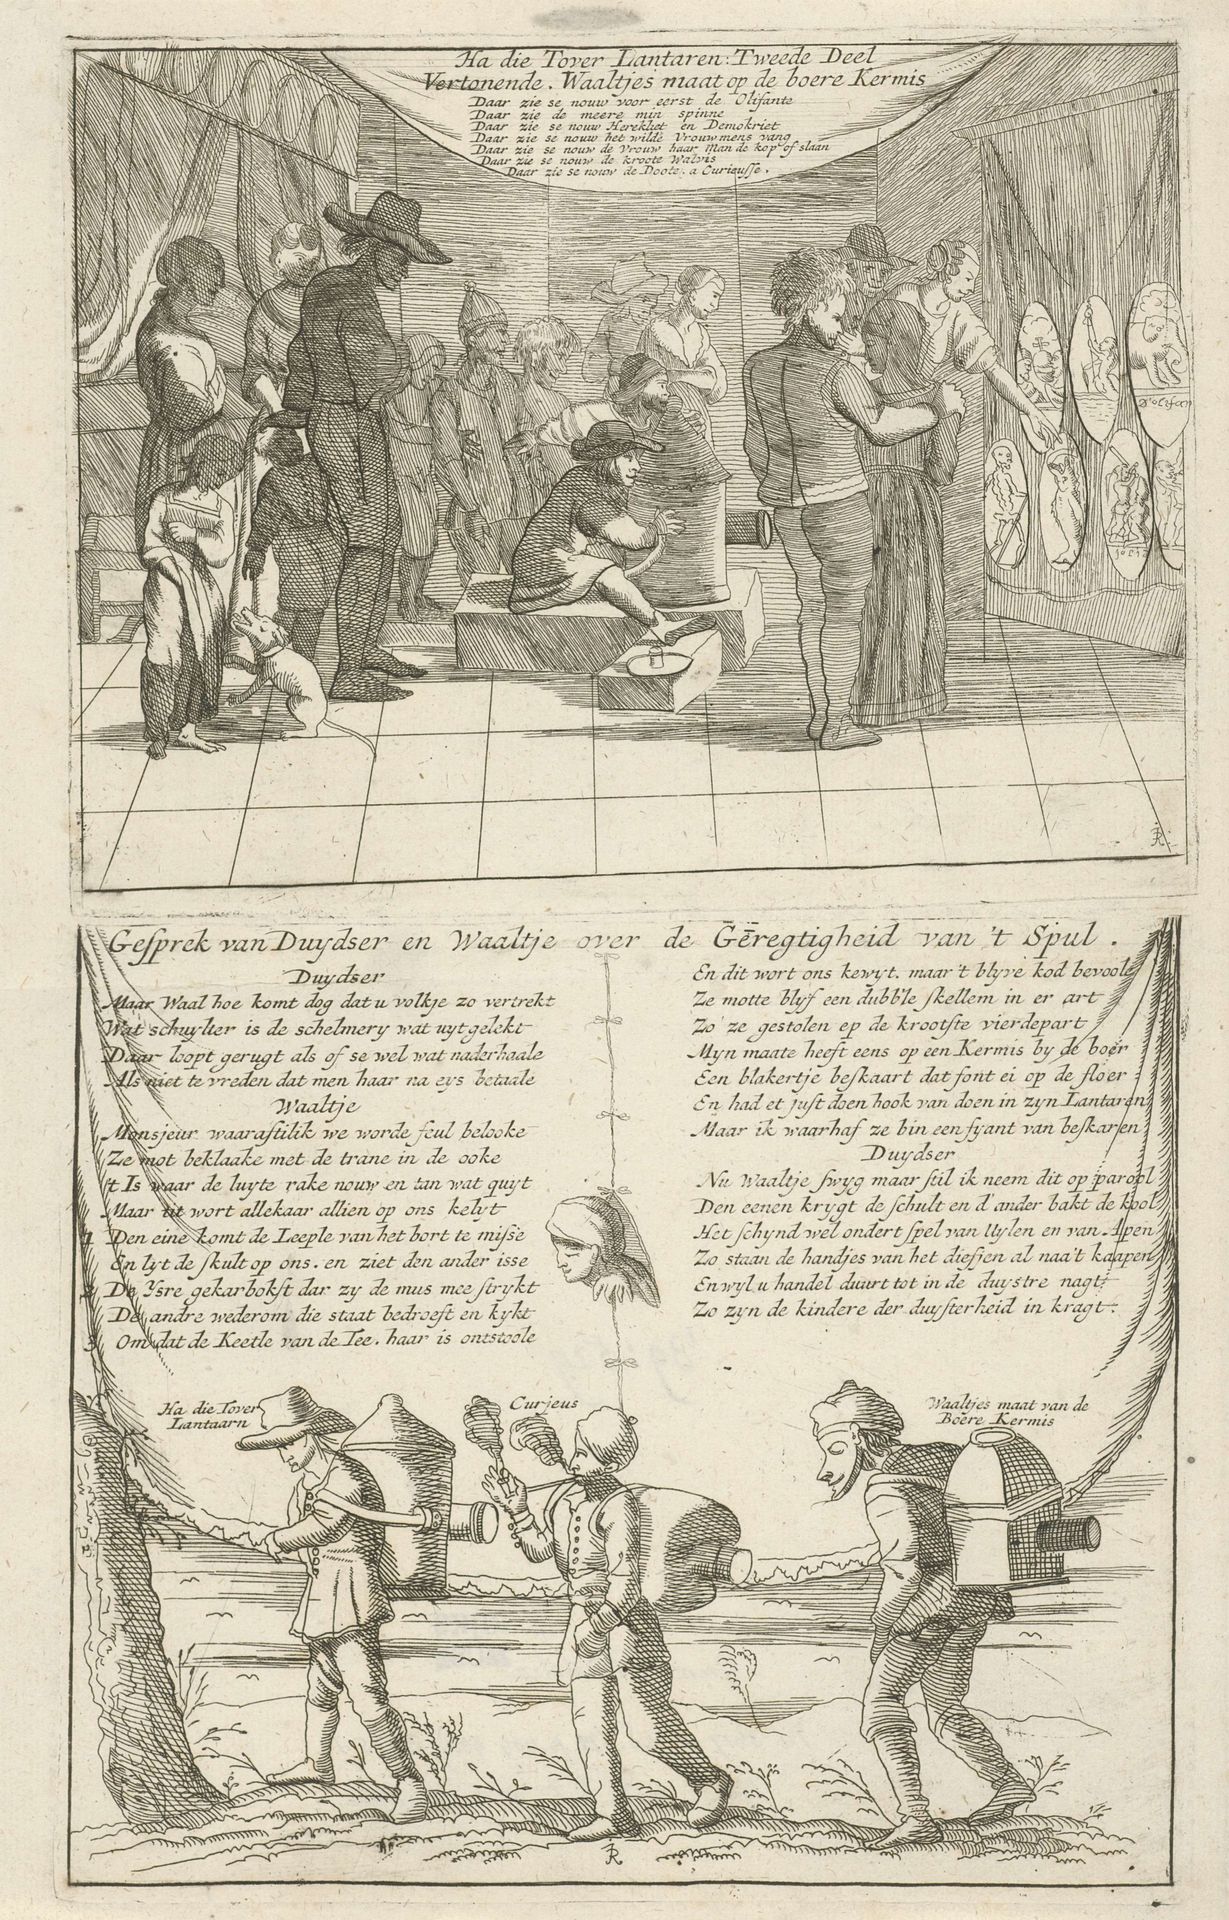 Ha die Tover Lantaren: Tweede Deel
Vertonende. Waaltjes maat op de boere Kermis
Daar zie se nouw voor eerst de Olifante
Daar zie de meere min spinne
Daar zie se nouw Herekliet en Demokriet
Daar zie se nouw het wilde Vrouwmens vang
Daar zie se nouw de Vrouw haar Man de kop of slaan
Daar zie se nouw de kroote Walvis
Daar zie se nouw de Doote. a Curieusse.
D'olifan
JR
Gesprek van Duydser en Waaltje over de Geregtigheid van 't Spul.
Duydser
Maar Waal hoe komt dog dat u volkje zo vertrekt
Wat schuylter is de schelmery wat uytgelekt
Daar loopt gerugt als of se wel wat naderhaale
Als niet te vreden dat men haar na eys betaale
Waaltje
Monsjeur waarastilik we worde feul belooke
Ze mot beklaake met de trane in de ooke
't Is waar de luyte rake nouw en tan wat quyt
Maar tit wort allekaar allien op ons kelyt
1 Den eine komt de Leeple van het bort te misse
En lyt de skult op ons. en ziet den ander isse
2 De Ysre gekarbokst dar zy de mus mee strykt
De andre wederom die staat bedroeft en kykt
3 Om dat de Keetle van de Tee. haar is ontstoole
En dit wort ons kewyt. maar 't blyve kod bevoole
Ze motte blyf een dubb'le skellem in er art
Zo' ze gestolen ep de krootste vierdepart
Myn maate heeft eens op een Kermis by de boer
Een blakertje beskaart dat font ei op de floer
En had et just doen hook van doen in zyn Lantaren
Maar ik waarhaf ze bin een fyant van beskaren
Duydser
Nu Waaltje swyg maar stil ik neem dit op parool
Den eenen krygt de schult en d'ander bakt de kool
Het schynd wel ondert spel van Uylen en van Apen
Zo staan de handjes van het diefjen al naa't kaapen
En wyl u handel duurt tot in de duystre nagt
Zo zyn de kindere der duysterheid in kragt.
Ha die Tover
Lantaarn
Curjeus
Waaltjes maat van de
Boere Kermis
JR